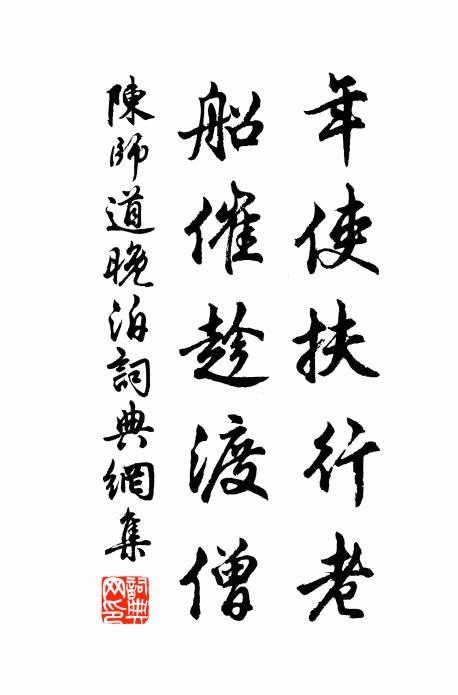 年使扶行老
船催趁渡僧
陳師道晚泊詞典網集
詞典網印